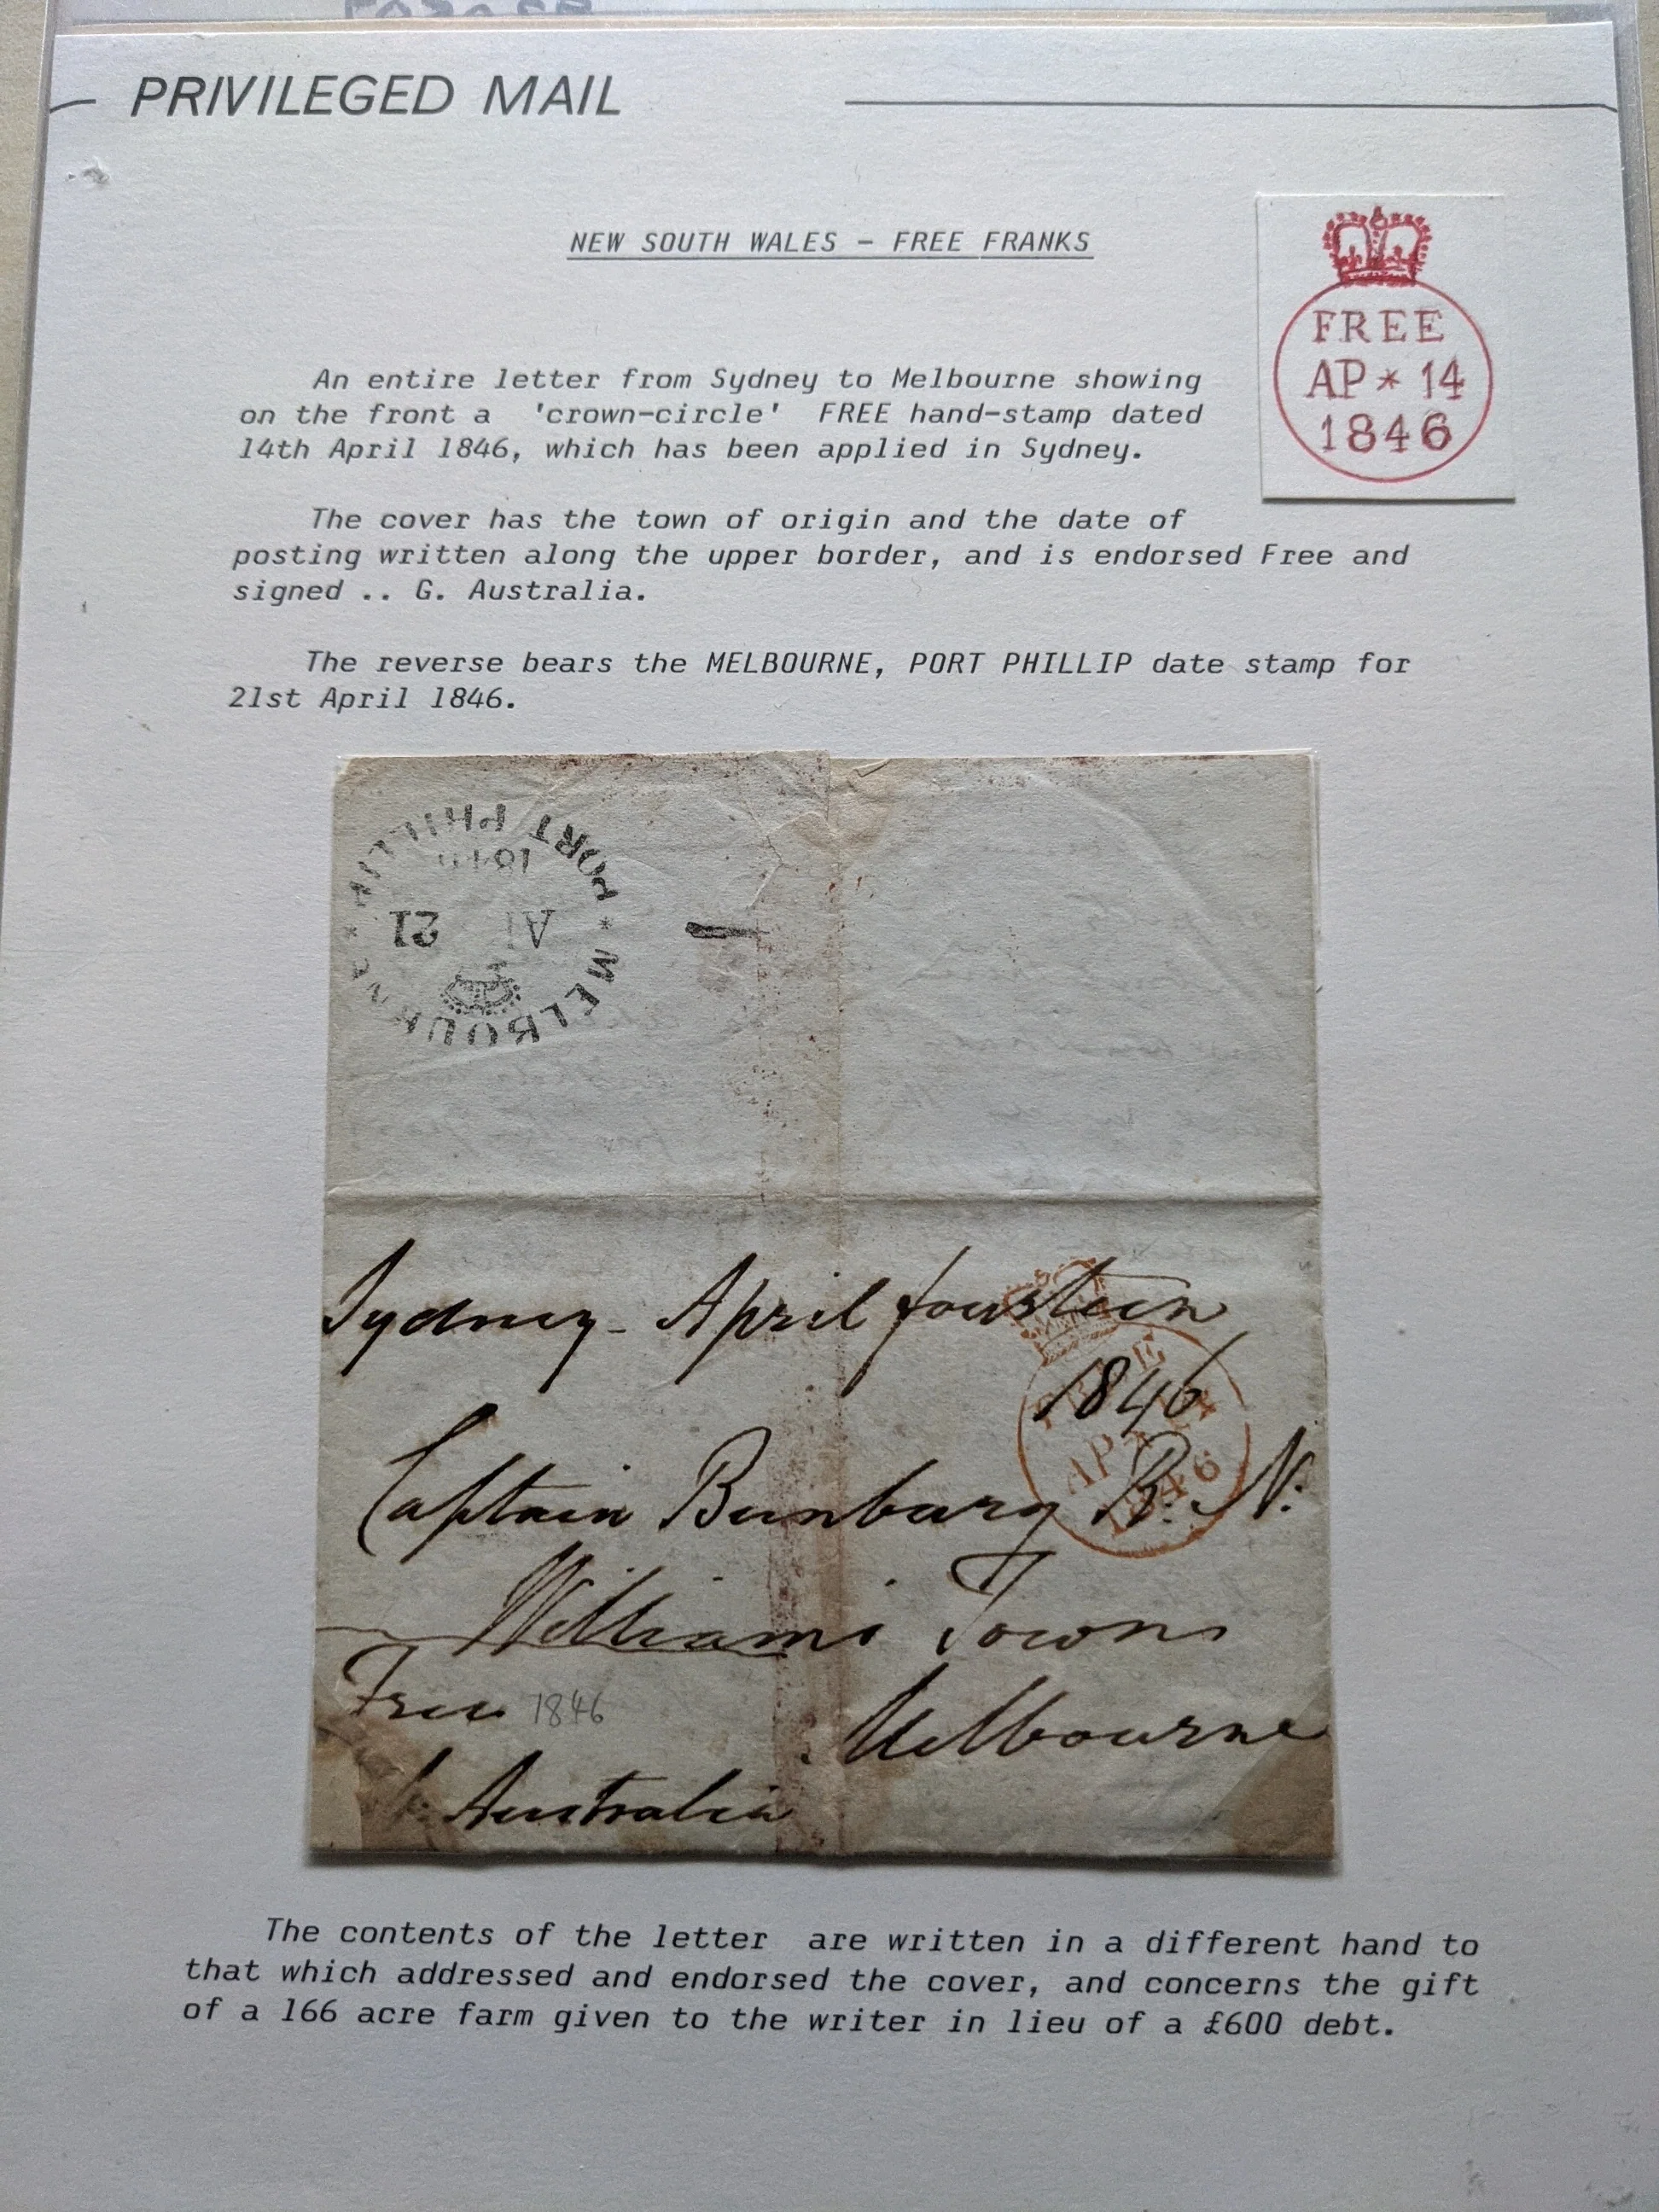 PRIVILEGED MAIL
NEW SOUTH WALES - FREE FRANKS
FREE
AP * 14
1846
An entire letter from Sydney to Melbourne showing
on the front a 'crown-circle' FREE hand-stamp dated
14th April 1846, which has been applied in Sydney.
The cover has the town of origin and the date of
posting written along the upper border, and is endorsed Free and
signed .. G. Australia.
The reverse bears the MELBOURNE, PORT PHILLIP date stamp for
21st April 1846.
MELBOURNE * PORT PHILLIP *
21
Sydney - April fourteen
1846
FREE
AP * 14
1846
Captain Bunbury R. N.
Williams Town
Free 1846
Melbourne
Australia
The contents of the letter are written in a different hand to
that which addressed and endorsed the cover, and concerns the gift
of a 166 acre farm given to the writer in lieu of a £600 debt.